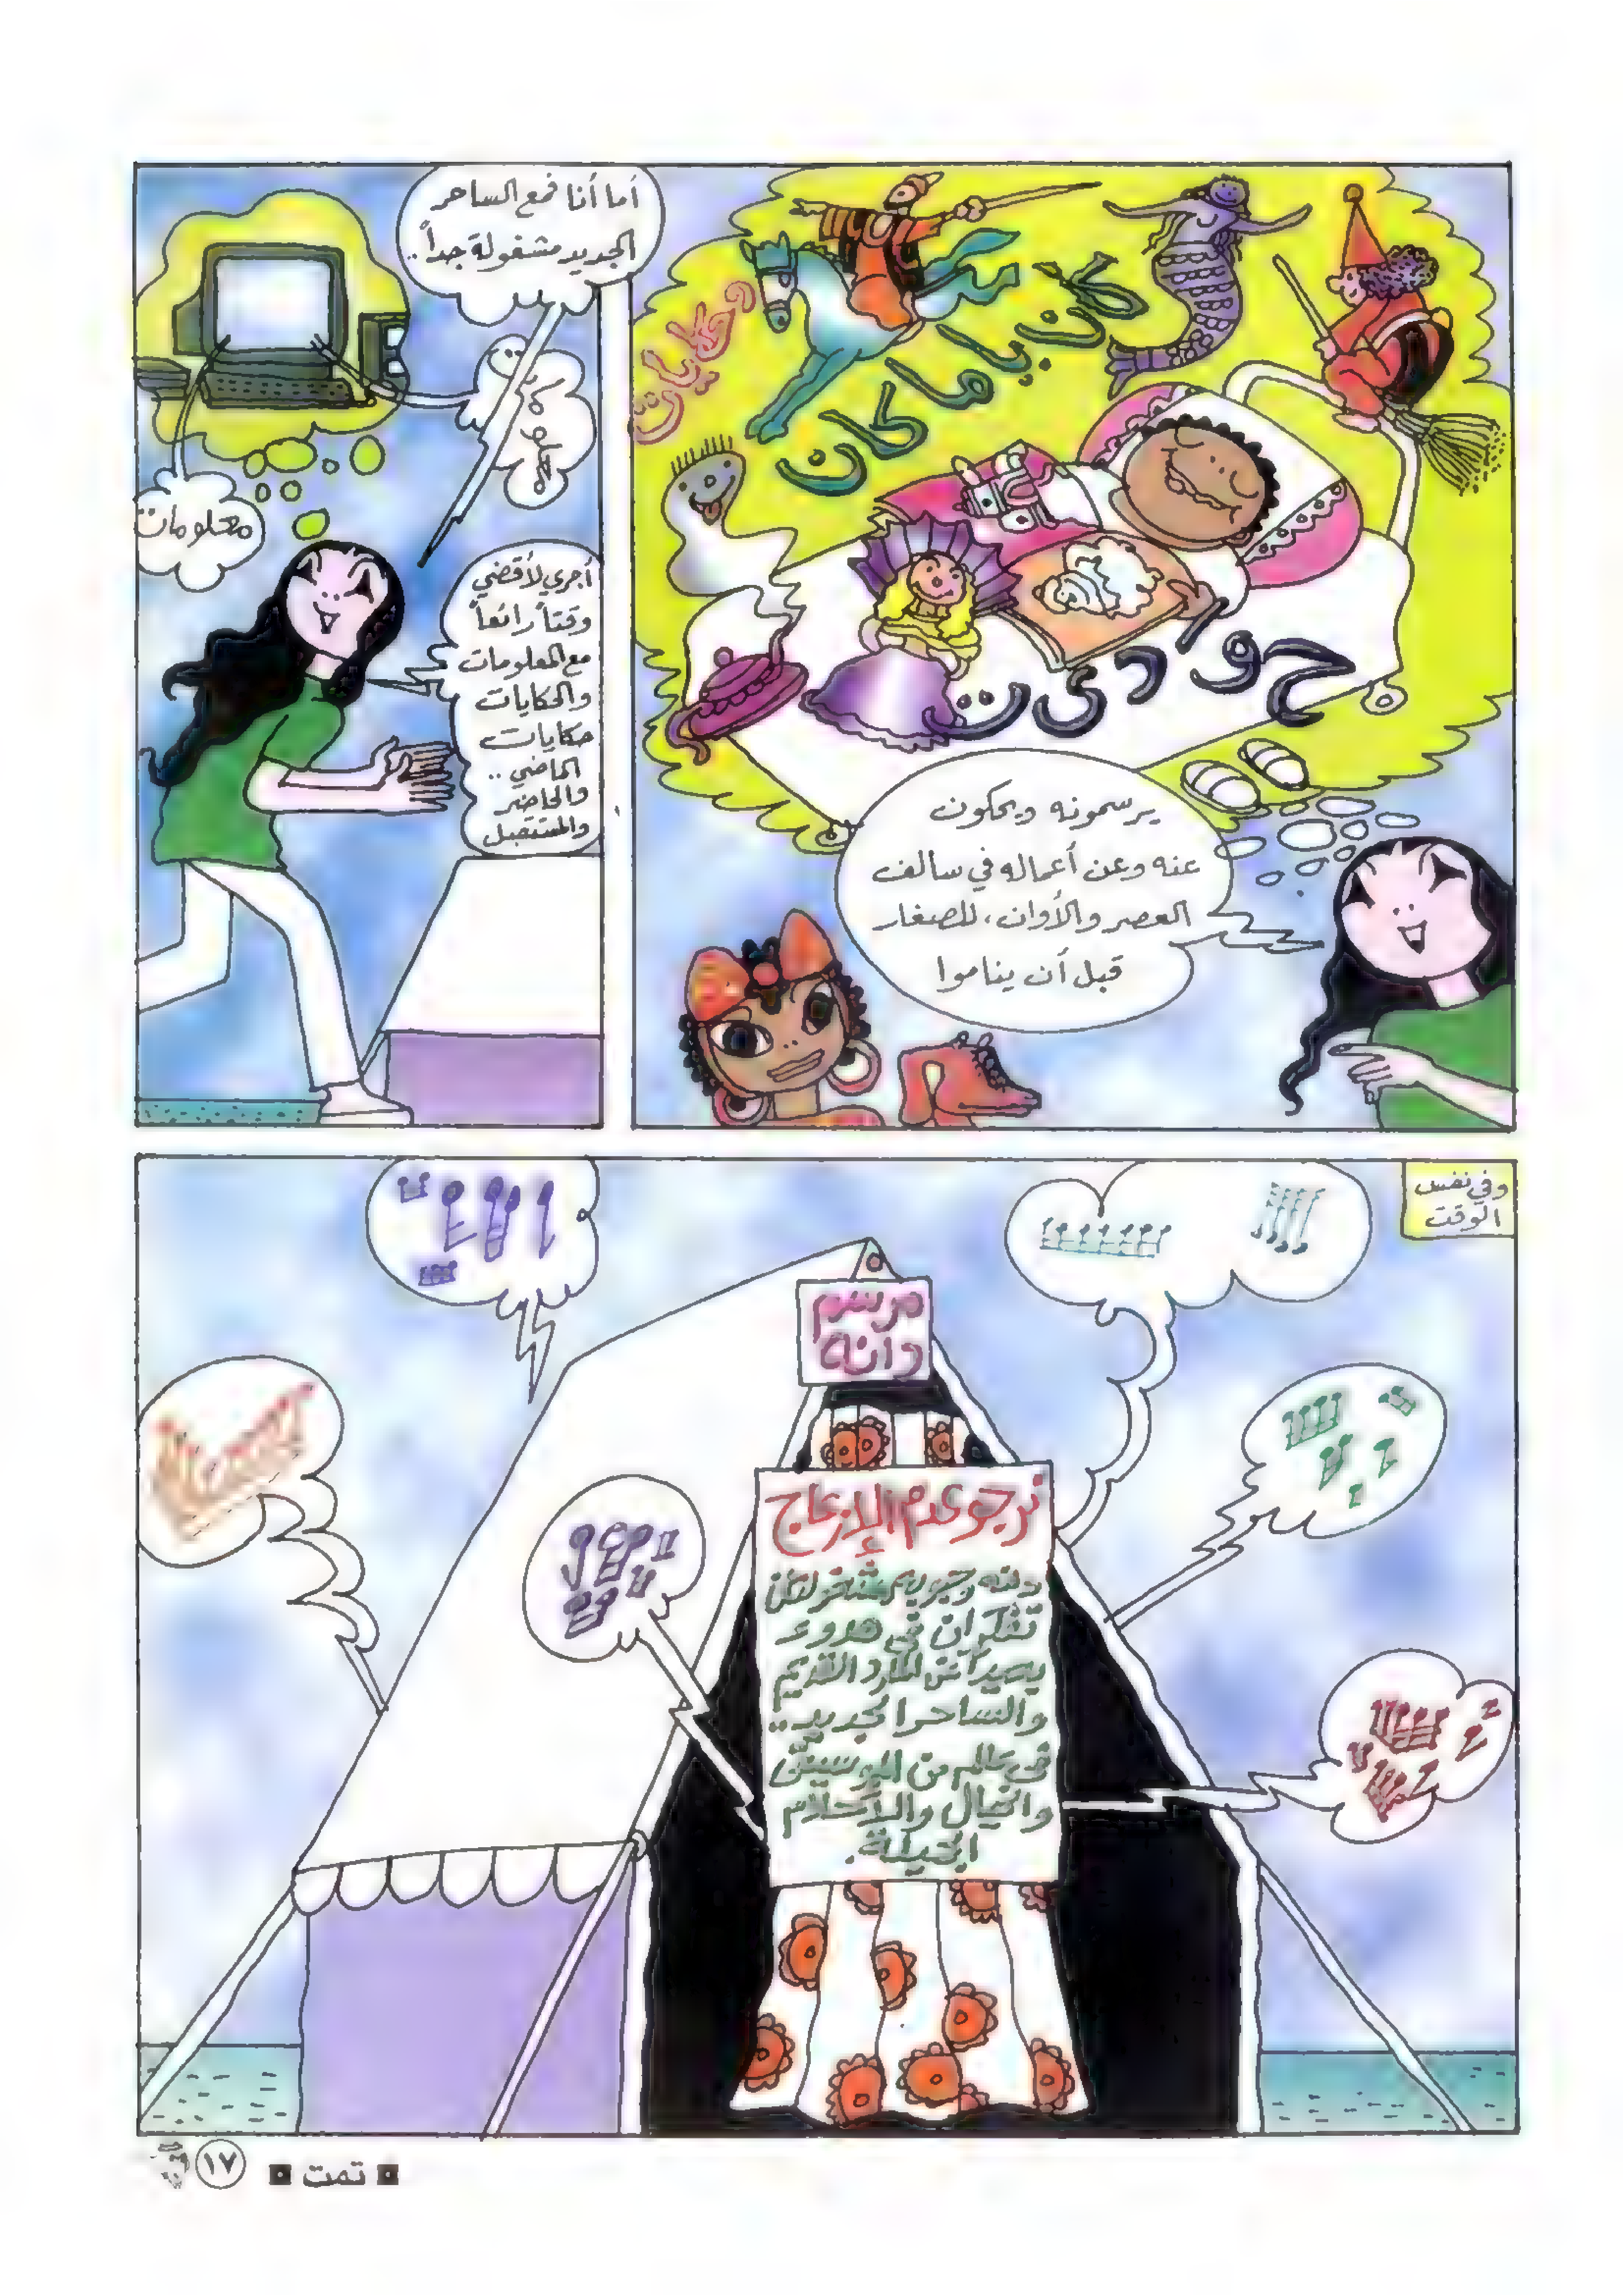 كان يا ما كان
وحكايات
حواديت
يرسمونه ويحكون
عنه وعن أعماله في سالف
العصر والأوان، للصغار
قبل أن يناموا
أما أنا فمع الساحر
الجديد مشغولة جداً..
معلومات
معلومات
أجري لأقضي
وقتاً رائعاً
مع المعلومات
والحكايات
حكايات
الماضي..
والحاضر
والمستقبل
وفي نفس
الوقت
مرسم
دانه
نرجو عدم الإزعاج
دانه وحبوبه مشغولتان
تفكران في هدوء
بعيداً عن المارد القديم
والساحر الجديد..
في عالم من الموسيقى
والخيال والأحلام
الجميلة.
تمت
١٧